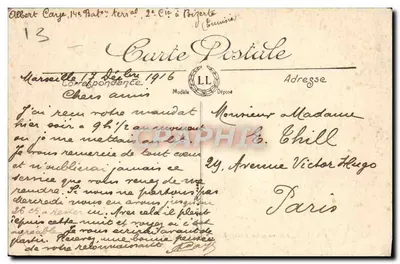 Albert Caye, 14e Bat.on terial, 2e Cie à Bizerte
(Tunisie)
13
Carte Postale
Correspondance
LL
Modèle Déposé
Adresse
Marseille 17 Décbre 1916
Chers amis
J'ai reçu votre mandat
hier soir à 9h 1/2 au moment
où je me mettais au lit
Je vous remercie de tout cœur
et n'oublierai jamais ce
service que vous venez de me
rendre. Si nous ne partons pas
nous en avons jusqu'au
Avec cela il pleut
depuis cette nuit et
agréable. Je vous écrirai avant de
partir. Recevez une bonne pensée
de votre reconnaissant
Monsieur Madame
E. Thill
29, Avenue Victor Hugo
Paris
DELCAMPE